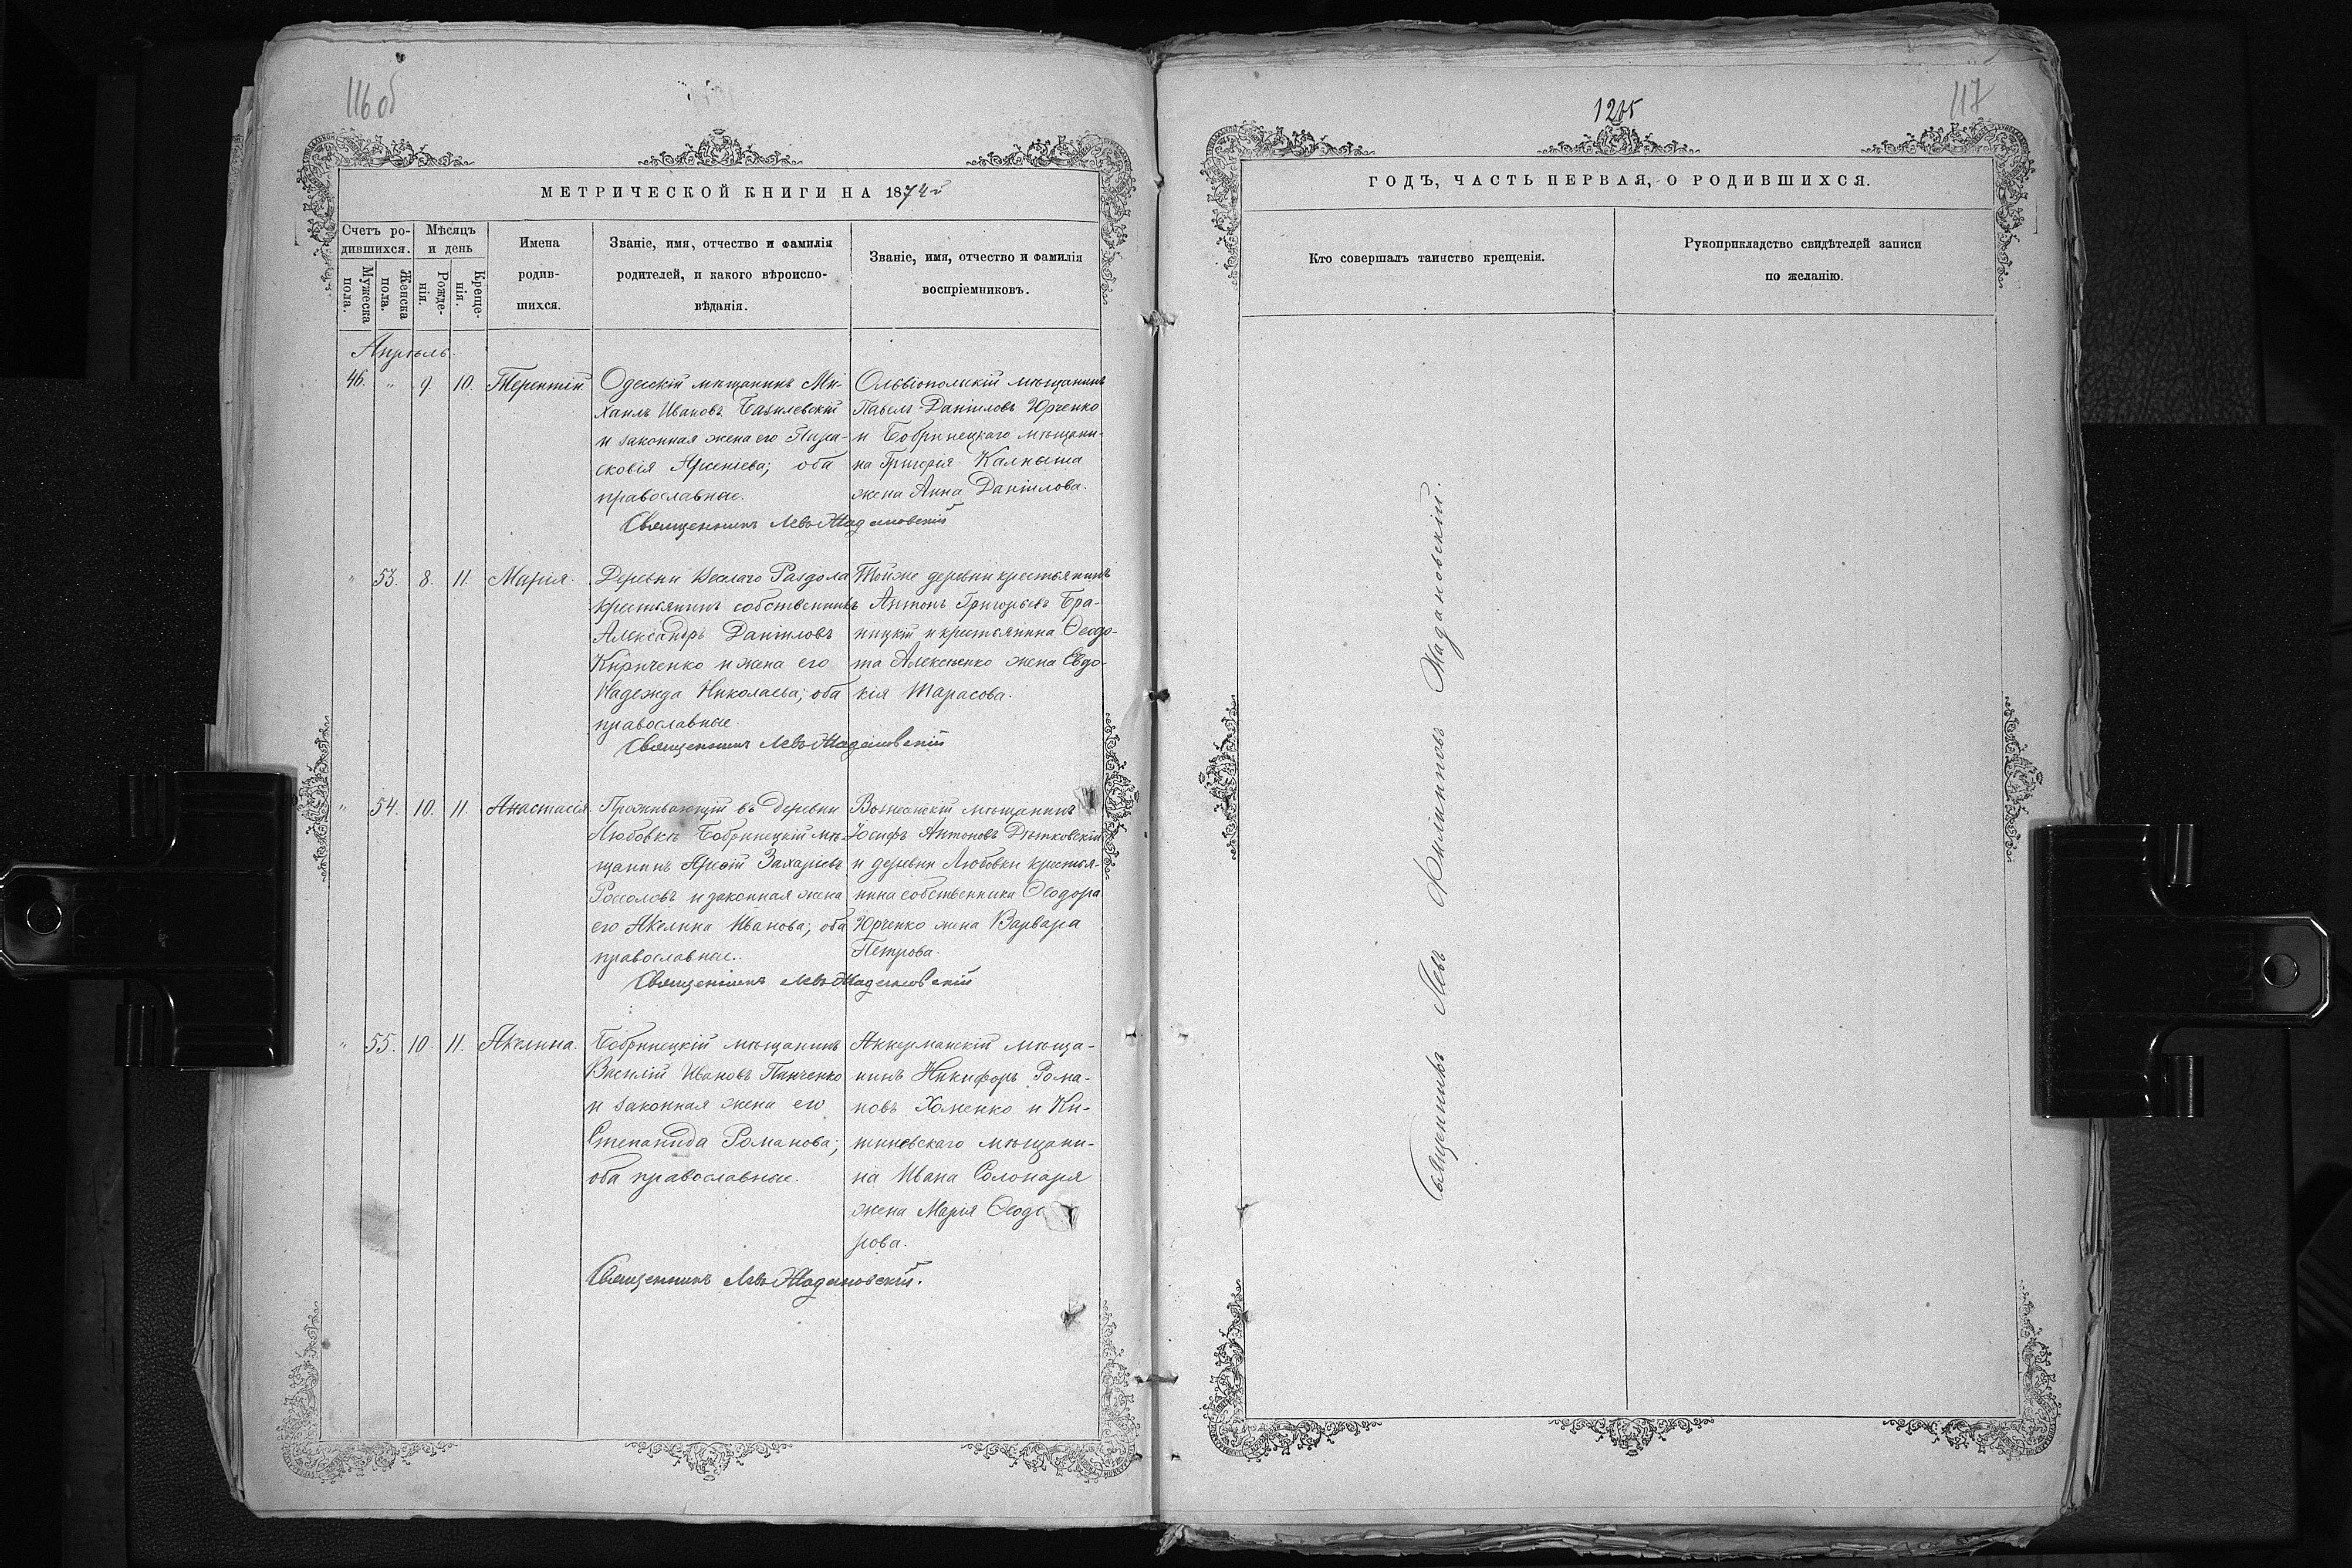 116 об
МЕТРИЧЕСКОЙ КНИГИ НА 1874й
Счетъ ро-
дившихся.
Мужеска
пола.
Женска
пола.
Мѣсяцъ
и день
Рожде-
нія.
Креще-
нія.
Имена
родив-
шихся.
Званіе, имя, отчество и фамилія
родителей, и какого вѣроиспо-
вѣданія.
Званіе, имя, отчество и фамилія
воспріемниковъ.
Апрѣль.
46. " 9. 10. Терентій.
Одесскій мѣщанинъ Ми-
хаилъ Ивановъ Базилевскій
и законная жена его Пара-
сковія Арсеніева; оба
православные.
Ольвіопольскій мѣщанинъ
Павелъ Даніиловъ Юрченко
и Бобринецкаго мѣщани-
на Григорія Калныша
жена Анна Даніилова.
Священникъ Левъ Жадановскій
" 53. 8. 11. Марія.
Деревни Веселаго Раздола
крестьянинъ собственникъ
Александръ Даніиловъ
Кириченко и жена его
Надежда Николаева; оба
православные.
Тойже деревни крестьянинъ
Антонъ Григорьевъ Бра-
ницкій и крестьянина Ѳеодо-
та Алексѣенко жена Евдо-
кія Тарасова.
Священникъ Левъ Жадановскій
" 54. 10. 11. Анастасія
Проживающій въ деревни
Любовкѣ Бобринецкій мѣ-
щанинъ Захаріевъ
и законная жена
его Акелина Иванова; оба
православные.
Вознесенскій мѣщанинъ
Іосифъ Антоновъ Дѣтковскій
и деревни Любовки крестья-
нина собственника Ѳеодора
Юрченко жена Варвара
Петрова.
Священникъ Левъ Жадановскій
" 55. 10. 11. Акелина.
Бобринецкій мѣщанинъ
Василій Ивановъ Панченко
и законная жена его
Степанида Романова;
оба православные.
Аккерманскій мѣща-
нинъ Никифоръ Рома-
новъ Хоменко и Ки-
шиневскаго мѣщани-
на Ивана Солонаря
жена Марія Ѳеодо
рова.
Священникъ Левъ Жадановскій.
1265
117
ГОДЪ, ЧАСТЬ ПЕРВАЯ, О РОДИВШИХСЯ.
Кто совершалъ таинство крещенія.
Рукоприкладство свидѣтелей записи
по желанію.
Священникъ Левъ Филипповъ Жадановскій.